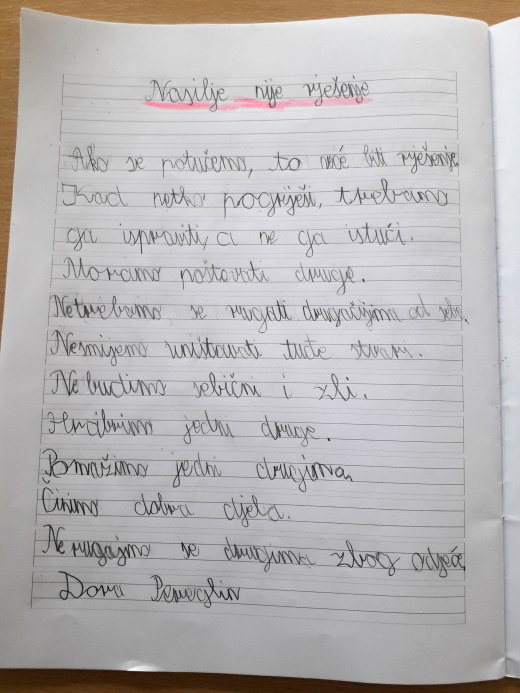 Nasilje nije rješenje
Ako se potučemo, to neće biti rješenje.
Kad netko pogriješi, trebamo
ga ispraviti, a ne ga istući.
Moramo poštovati druge.
Netrebamo se rugati drugačijima od sebe.
Nesmijemo uništavati tuđe stvari.
Ne budimo sebični i zli.
Hrabrimo jedni druge.
Pomažimo jedni drugima.
Činimo dobra djela.
Ne rugajmo se drugima zbog odjeće.
Dora